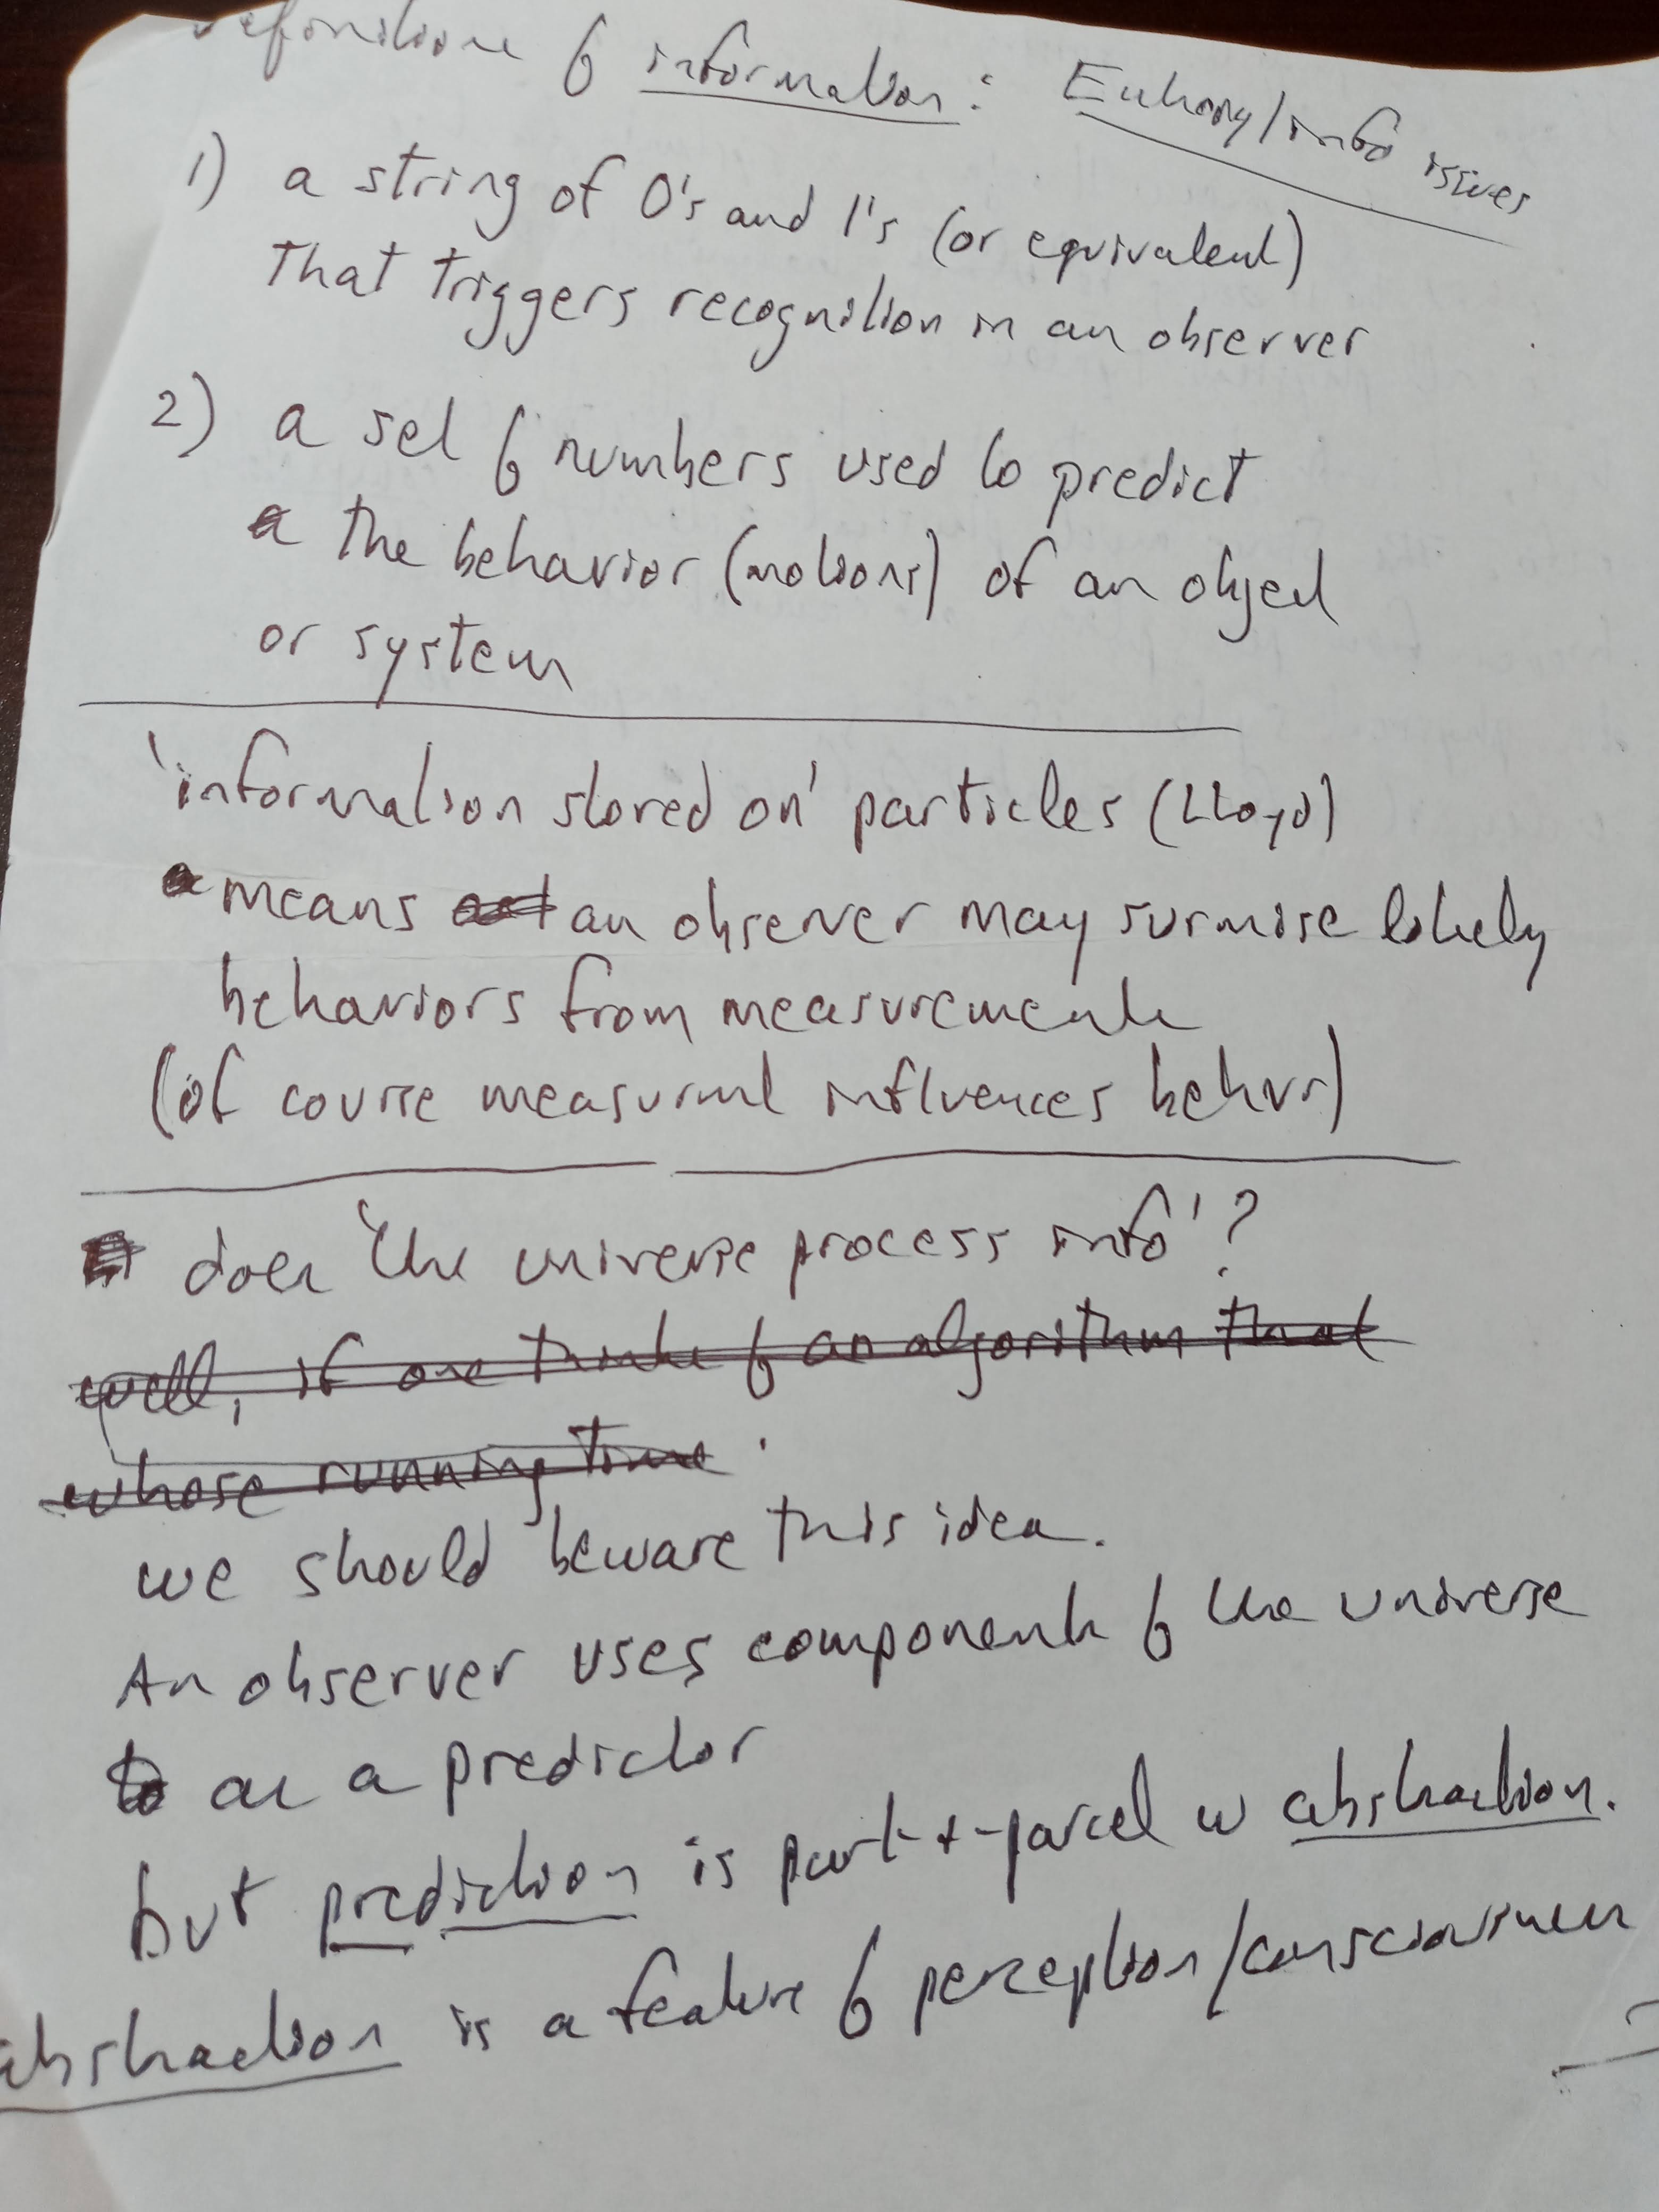 Definitions of information: Entropy/info issues
1) a string of 0's and 1's (or equivalent)
That triggers recognition in an observer
2) a set of numbers used to predict
a the behavior (motions) of an object
or system
'information stored on' particles (Lloyd)
means an observer may surmise likely
behaviors from measurements
(of course measurmt influences behvr)
does 'the universe process info'?
well, if one thinks of an algorithm that
whose running time
we should beware this idea.
An observer uses components of the universe
to as a predictor
but prediction is part-+-parcel w abstraction.
abstraction is a feature of perception/consciousness